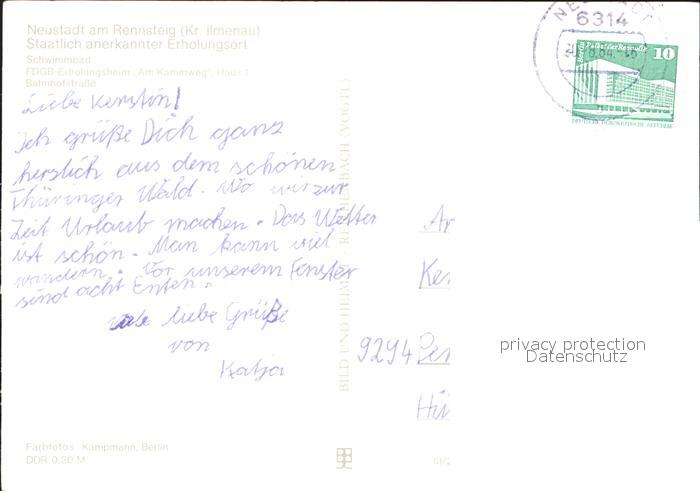 Neustadt am Rennsteig (Kr. Ilmenau)
Staatlich anerkannter Erholungsort
Schwimmbad
FDGB-Erholungsheim „Am Kammweg“, Haus 1
Bahnhofstraße
Liebe Kerstin!
Ich grüße Dich ganz
herslich aus dem schönen
Thüringer Wald. Wo wir zur
Zeit Urlaub machen. Das Wetter
ist schön. Man kann viel
wandern. Vor unserem Fenster
sind acht Enten.
liebe Grüße
von
Katja
Farbfotos: Kampmann, Berlin
DDR 0,20 M
BILD UND HEIMAT REICHENBACH (VOGTL)
6314
Berlin Palast der Republik
10
DEUTSCHE DEMOKRATISCHE REPUBLIK
An
Ker
9294 Pen
privacy protection
Datenschutz